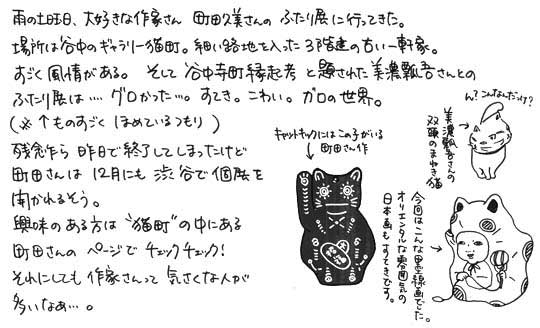 雨の土曜日、大好きな作家さん 町田久美さんの ふたり展に行ってきた。
場所は谷中のギャラリー猫町。細い路地を入った3階建の古い一軒家。
すごく風情がある。そして 谷中寺町縁起考 と題された美濃瓢吾さんとの
ふたり展は…. グロかった…。すてき。こわい。ガロの世界。
(※↑ものすごく ほめているつもり)
残念乍ら 昨日で終了してしまったけど
町田さんは 12月にも 渋谷で個展を
開かれるそう。
興味のある方は "猫町" の中にある
町田さんの ページで チェックチェック!
それにしても 作家さんって 気さくな人が
多いなぁ…。
キャットチックにはこの子がいる
町田さん作
ん?こんなんだっけ?
美濃瓢吾さんの
双頭のまねき猫
今回はこんな墨線画でした。
オリエンタルな雰囲気の
日本画もすてきです。